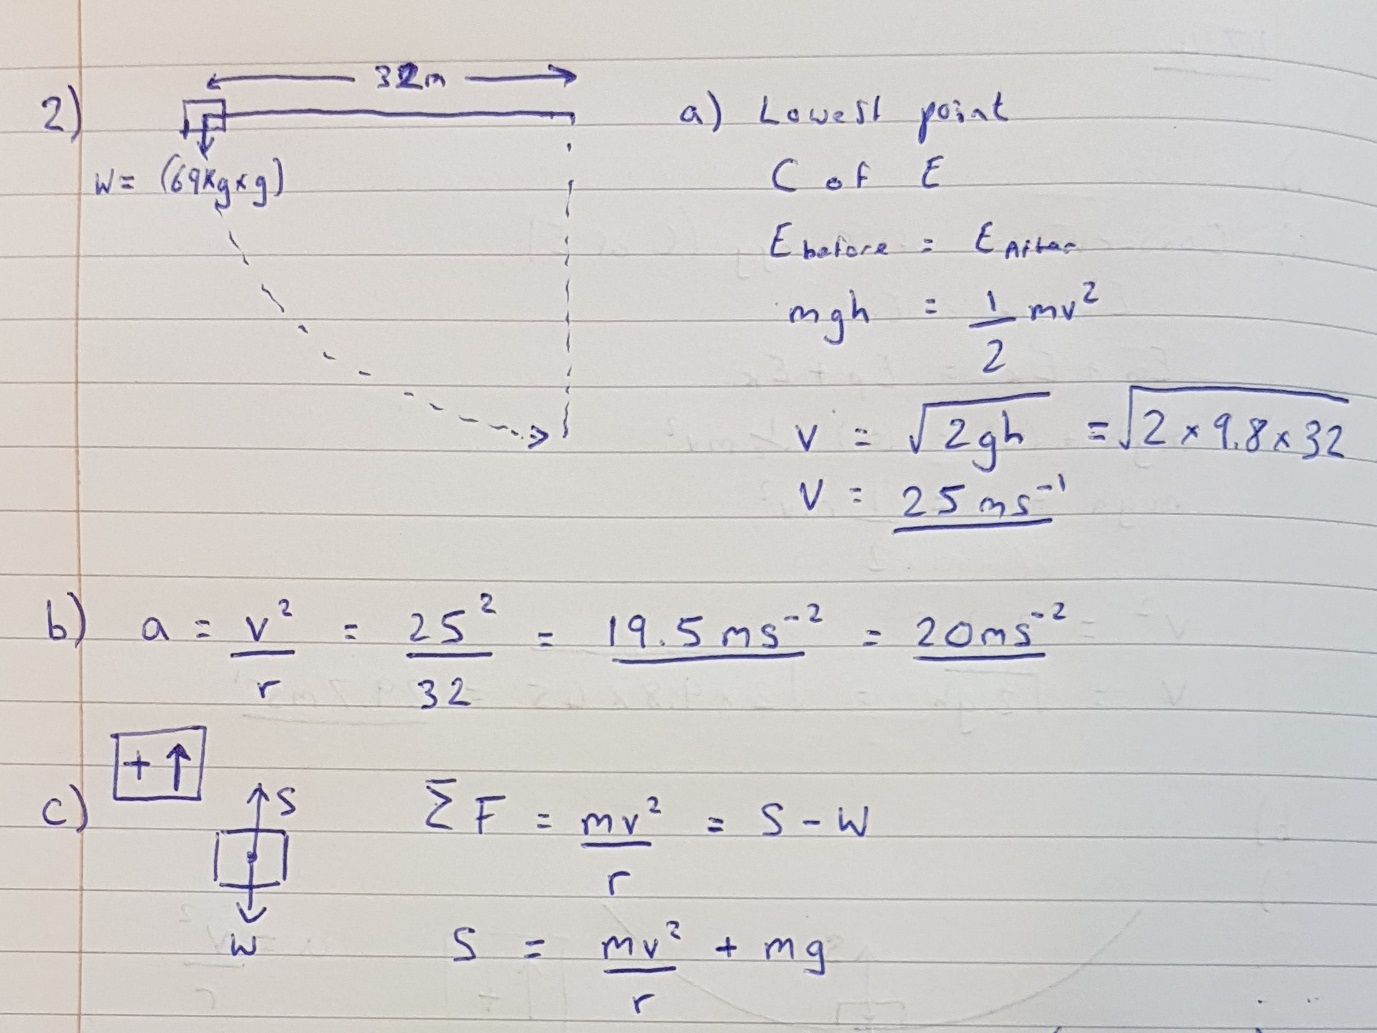 32m
2)
W = (69kg×g)
a) Lowest point
C of E
E before = E After
mgh = 1/2 mv²
v = √2gh = √2 × 9.8 × 32
V = 25 ms⁻¹
b) a = v²/r = 25²/32 = 19.5 ms⁻² = 20ms⁻²
+ ↑
c) S
W
ΣF = mv²/r = S - W
S = mv²/r + mg